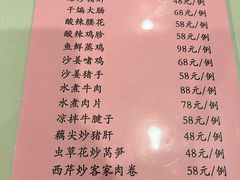 48元/例
干煸大肠 68元/例
酸辣腰花 58元/例
酸辣鸡胗 58元/例
鱼鲜蒸鸡 98元/例
沙姜啫鸡 68元/例
沙姜猪手 58元/例
水煮牛肉 88元/例
水煮肉片 78元/例
凉拌牛腱子 58元/例
藕尖炒猪肝 48元/例
虫草花炒莴笋 48元/例
西芹炒客家肉卷 58元/例